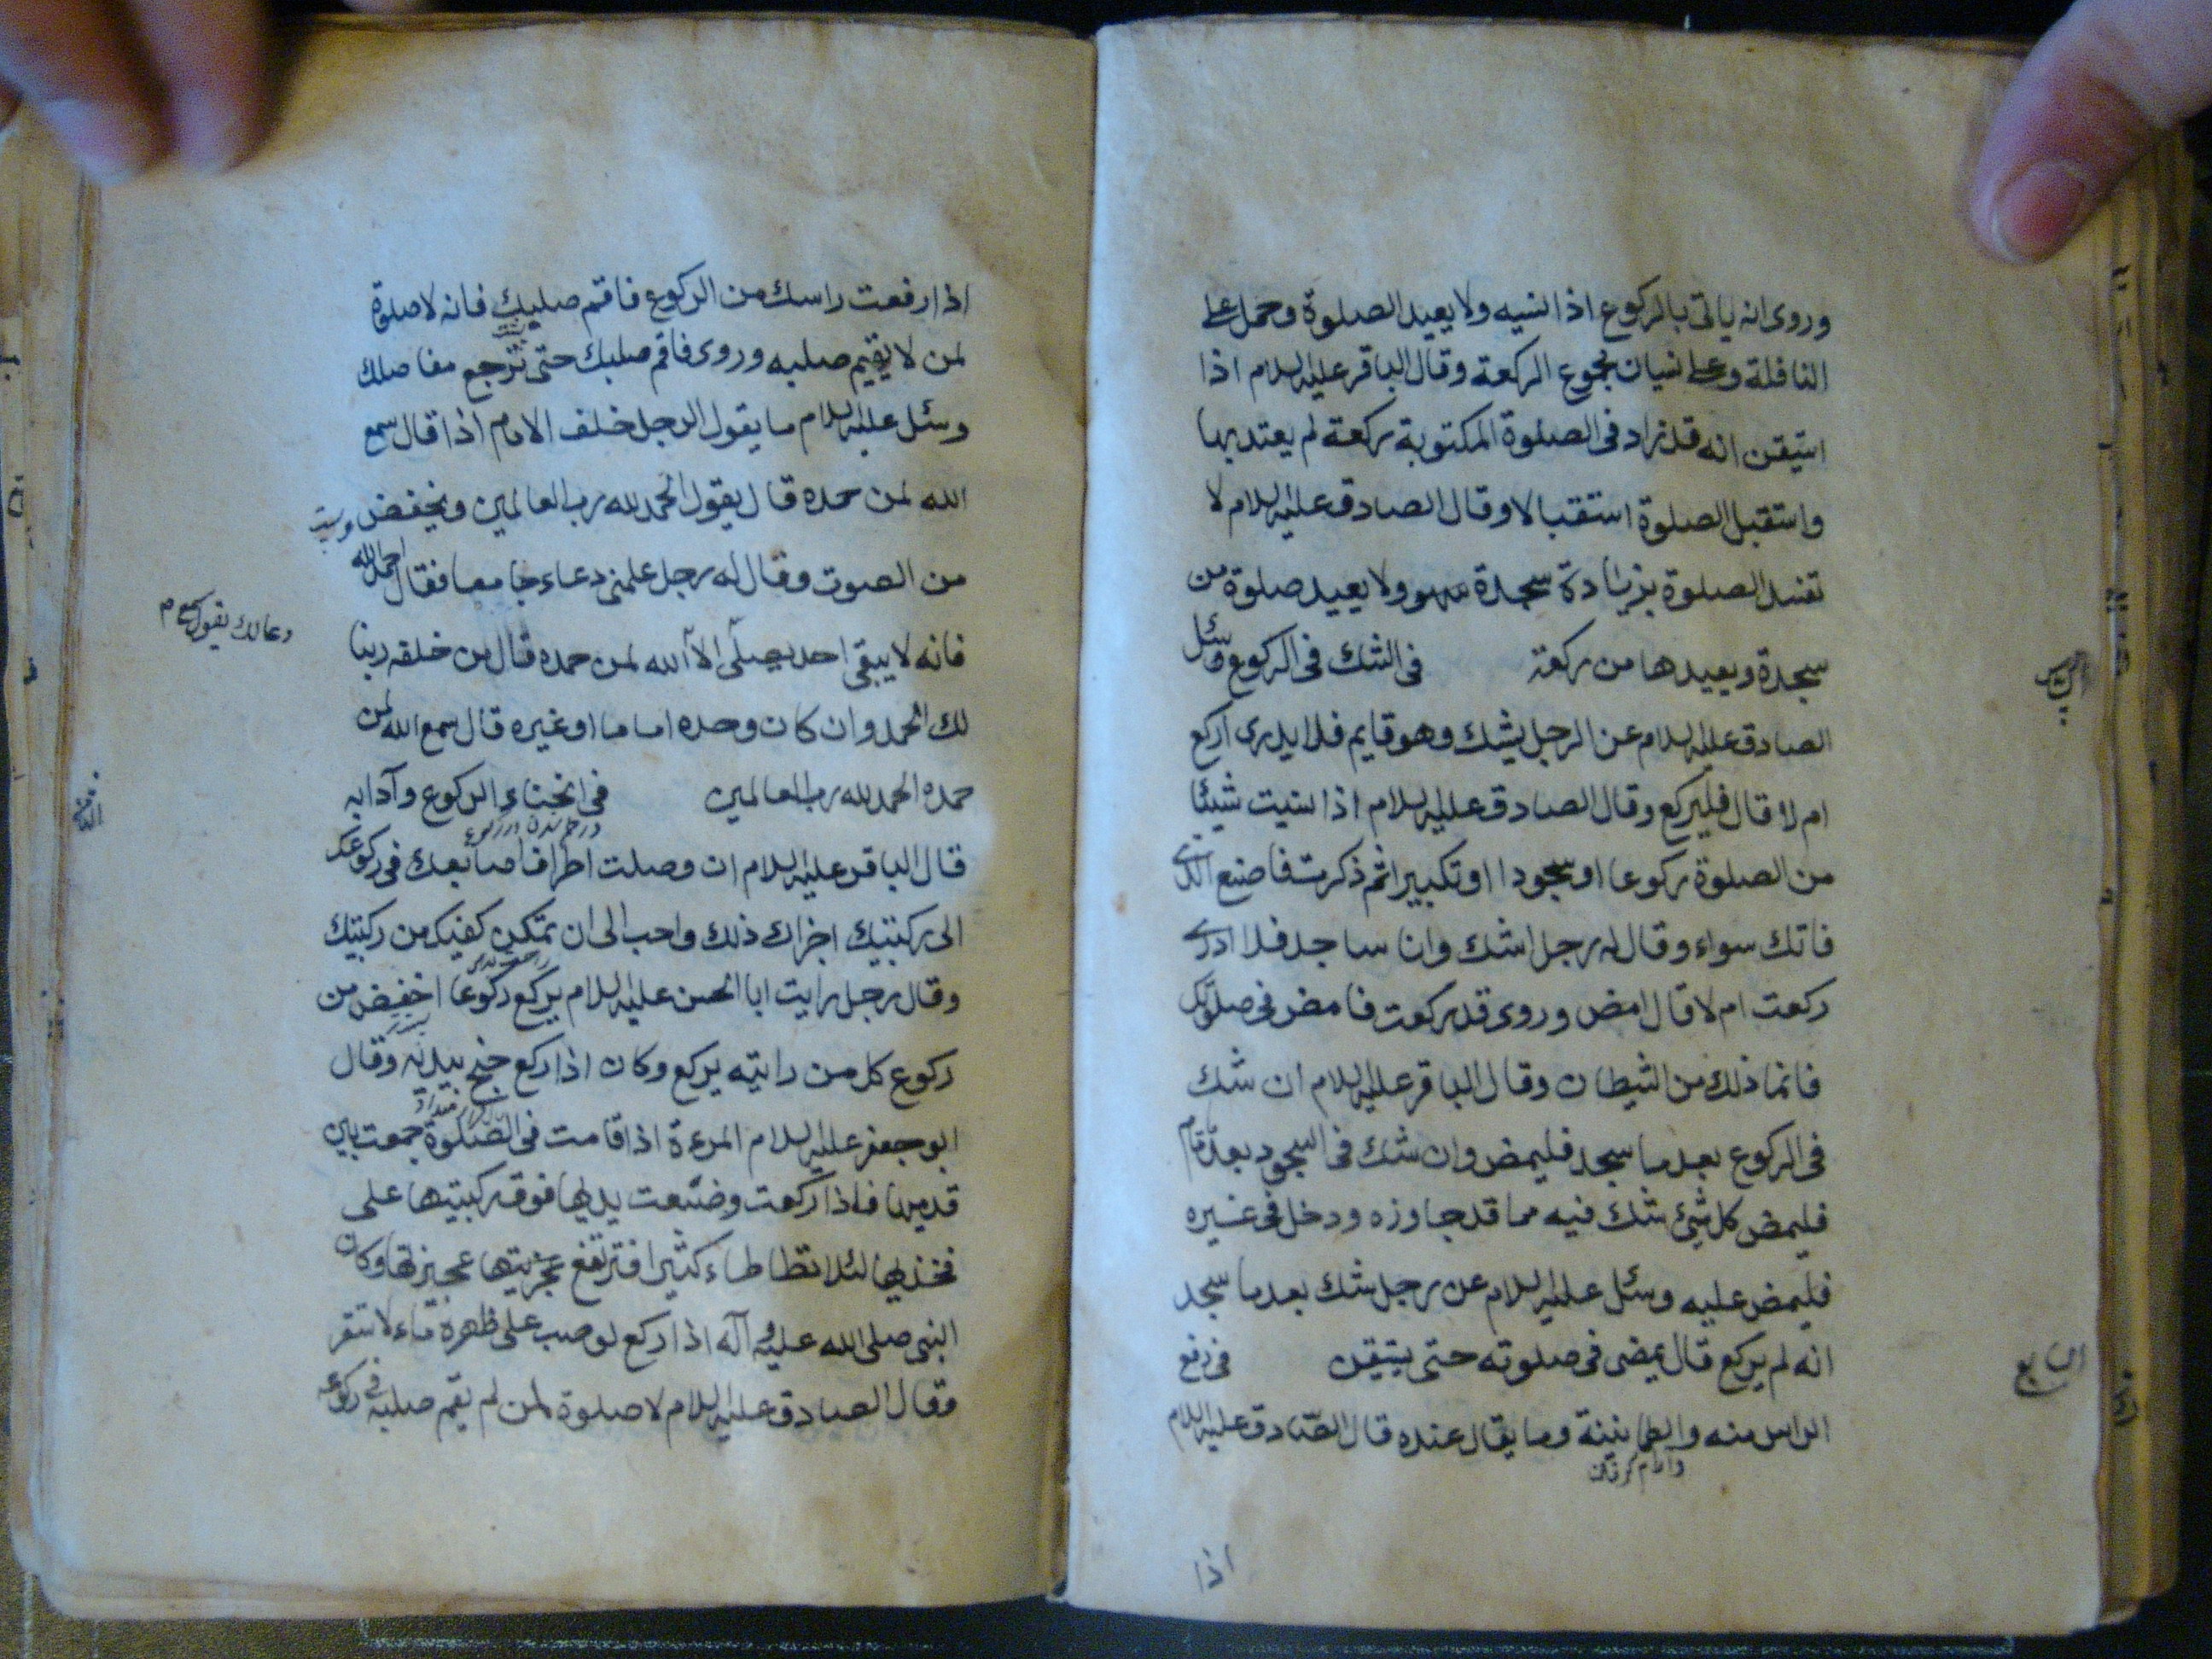 وروى انه ياتى بالركوع اذا نسيه ولا يعيد الصلوة وحمل على
النافلة وعلى نسيان مجموع الركعة وقال الباقر عليه السلام اذا
استيقن انه قد زاد فى الصلوة المكتوبة ركعة لم يعتد بها
واستقبل الصلوة استقبالا وقال الصادق عليه السلام لا
تفسد الصلوة بزيادة سجدة سهو ولا يعيد صلوة من
سجدة ويعيدها من ركعة فى الشك فى الركوع وسئل
الصادق عليه السلام عن الرجل يشك وهو قايم فلا يدرى اركع
ام لا قال فليركع وقال الصادق عليه السلام اذا نسيت شيئا
من الصلوة ركوعا او سجودا او تكبيرا ثم ذكرت فاصنع الذى
فاتك سواء وقال له رجل اشك وانا ساجد فلا ادرى
ركعت ام لا قال امض وروى قد ركعت فامض فى صلوتك
فانما ذلك من الشيطان وقال الباقر عليه السلام ان شك
فى الركوع بعد ما سجد فليمض وان شك فى السجود بعد ما قام
فليمض كل شئ شك فيه مما قد جاوزه ودخل فى غيره
فليمض عليه وسئل عليه السلام عن رجل شك بعد ما سجد
انه لم يركع قال يمضى فى صلوته حتى يستيقن فى رفع
السابع
الراس منه والطمانينة وما يقال عنده قال الصادق عليه السلام
وآرام گرفتن
اذا
اذا رفعت راسك من الركوع فاقم صلبك فانه لا صلوة
لمن لا يقيم صلبه وروى فاقم صلبك حتى ترجع مفاصلك
وسئل عليه السلام ما يقول الرجل خلف الامام اذا قال سمع
الله لمن حمده قال يقول الحمد لله رب العالمين ويخفض
من الصوت وقال له رجل علمنى دعاء جامعا فقال احمد الله
فانه لا يبقى احد يصلى الا الله لمن حمده قال من خلفه ربنا
دعا لك يقول سمع
لك الحمد وان كان وحده اماما او غيره قال سمع الله لمن
حمده الحمد لله رب العالمين فى انحناء الركوع وآدابه
الثامن
قال الباقر عليه السلام ان وصلت اطراف اصابعك فى ركوعك
الى ركبتيك اجزاك ذلك واحب الى ان تمكن كفيك من ركبتيك
وقال رجل رايت ابا الحسن عليه السلام يركع ركوعا اخفض من
ركوع كل من رايته يركع وكان اذا ركع جنح بيديه وقال
ابو جعفر عليه السلام المرءة اذا قامت فى الصلوة جمعت بين
قدميها فاذا ركعت وضعت يديها فوق ركبتيها على
فخذيها لئلا تطاطاء كثيرا فترتفع عجيزتها وكان
النبى صلى الله عليه وآله اذا ركع لو صب على ظهره ماء لاستقر
وقال الصادق عليه السلام لا صلوة لمن لم يقم صلبه فى ركوعه